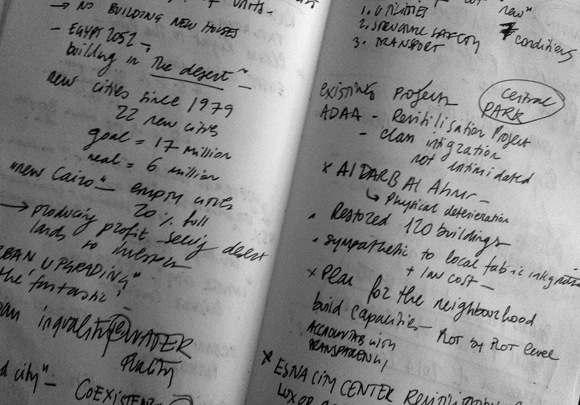 → NO BUILDING NEW HOUSES
- EGYPT 2052 →
building in "The desert" -
new cities since 1979
22 new cities
goal = 17 million
real = 6 million
"new Cairo" - empty cities
20% full
→ producing profit - selling desert
lands to investors
URBAN UPGRADING"
the 'fantastic'
inquality @ WATER
Quality
city" -
COEXISTENCE
new"
1. UTILITIES
2. STRUCTURE SAFETY
conditions
3. TRANSPORT
existing Projects
Central
PARK
ADAA - Revitilisation Project
- class integration
not intimidated
x Al DARB Al Ahmr -
↳ Physical deterioration
Restored 120 buildings
sympathetic to local fabric integration
+ low cost -
x Plan for the neighbourhood
build capacities - Plot by Plot level
ACCOUNTABILITY
TRANSPARENCY
x ESNA CITY CENTER
LUXOR